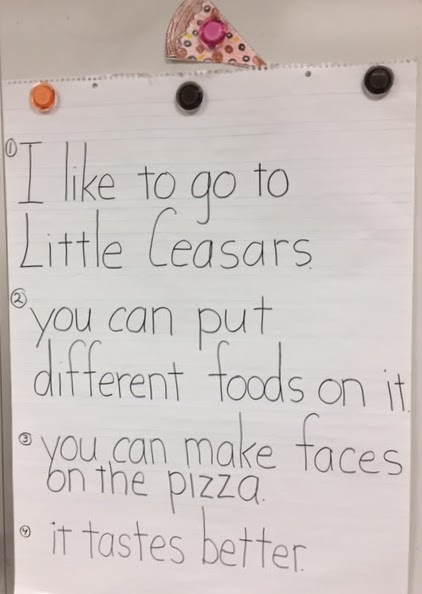 ① I like to go to
Little Ceasars.
② you can put
different foods on it.
③ you can make faces
on the pizza.
④ it tastes better.